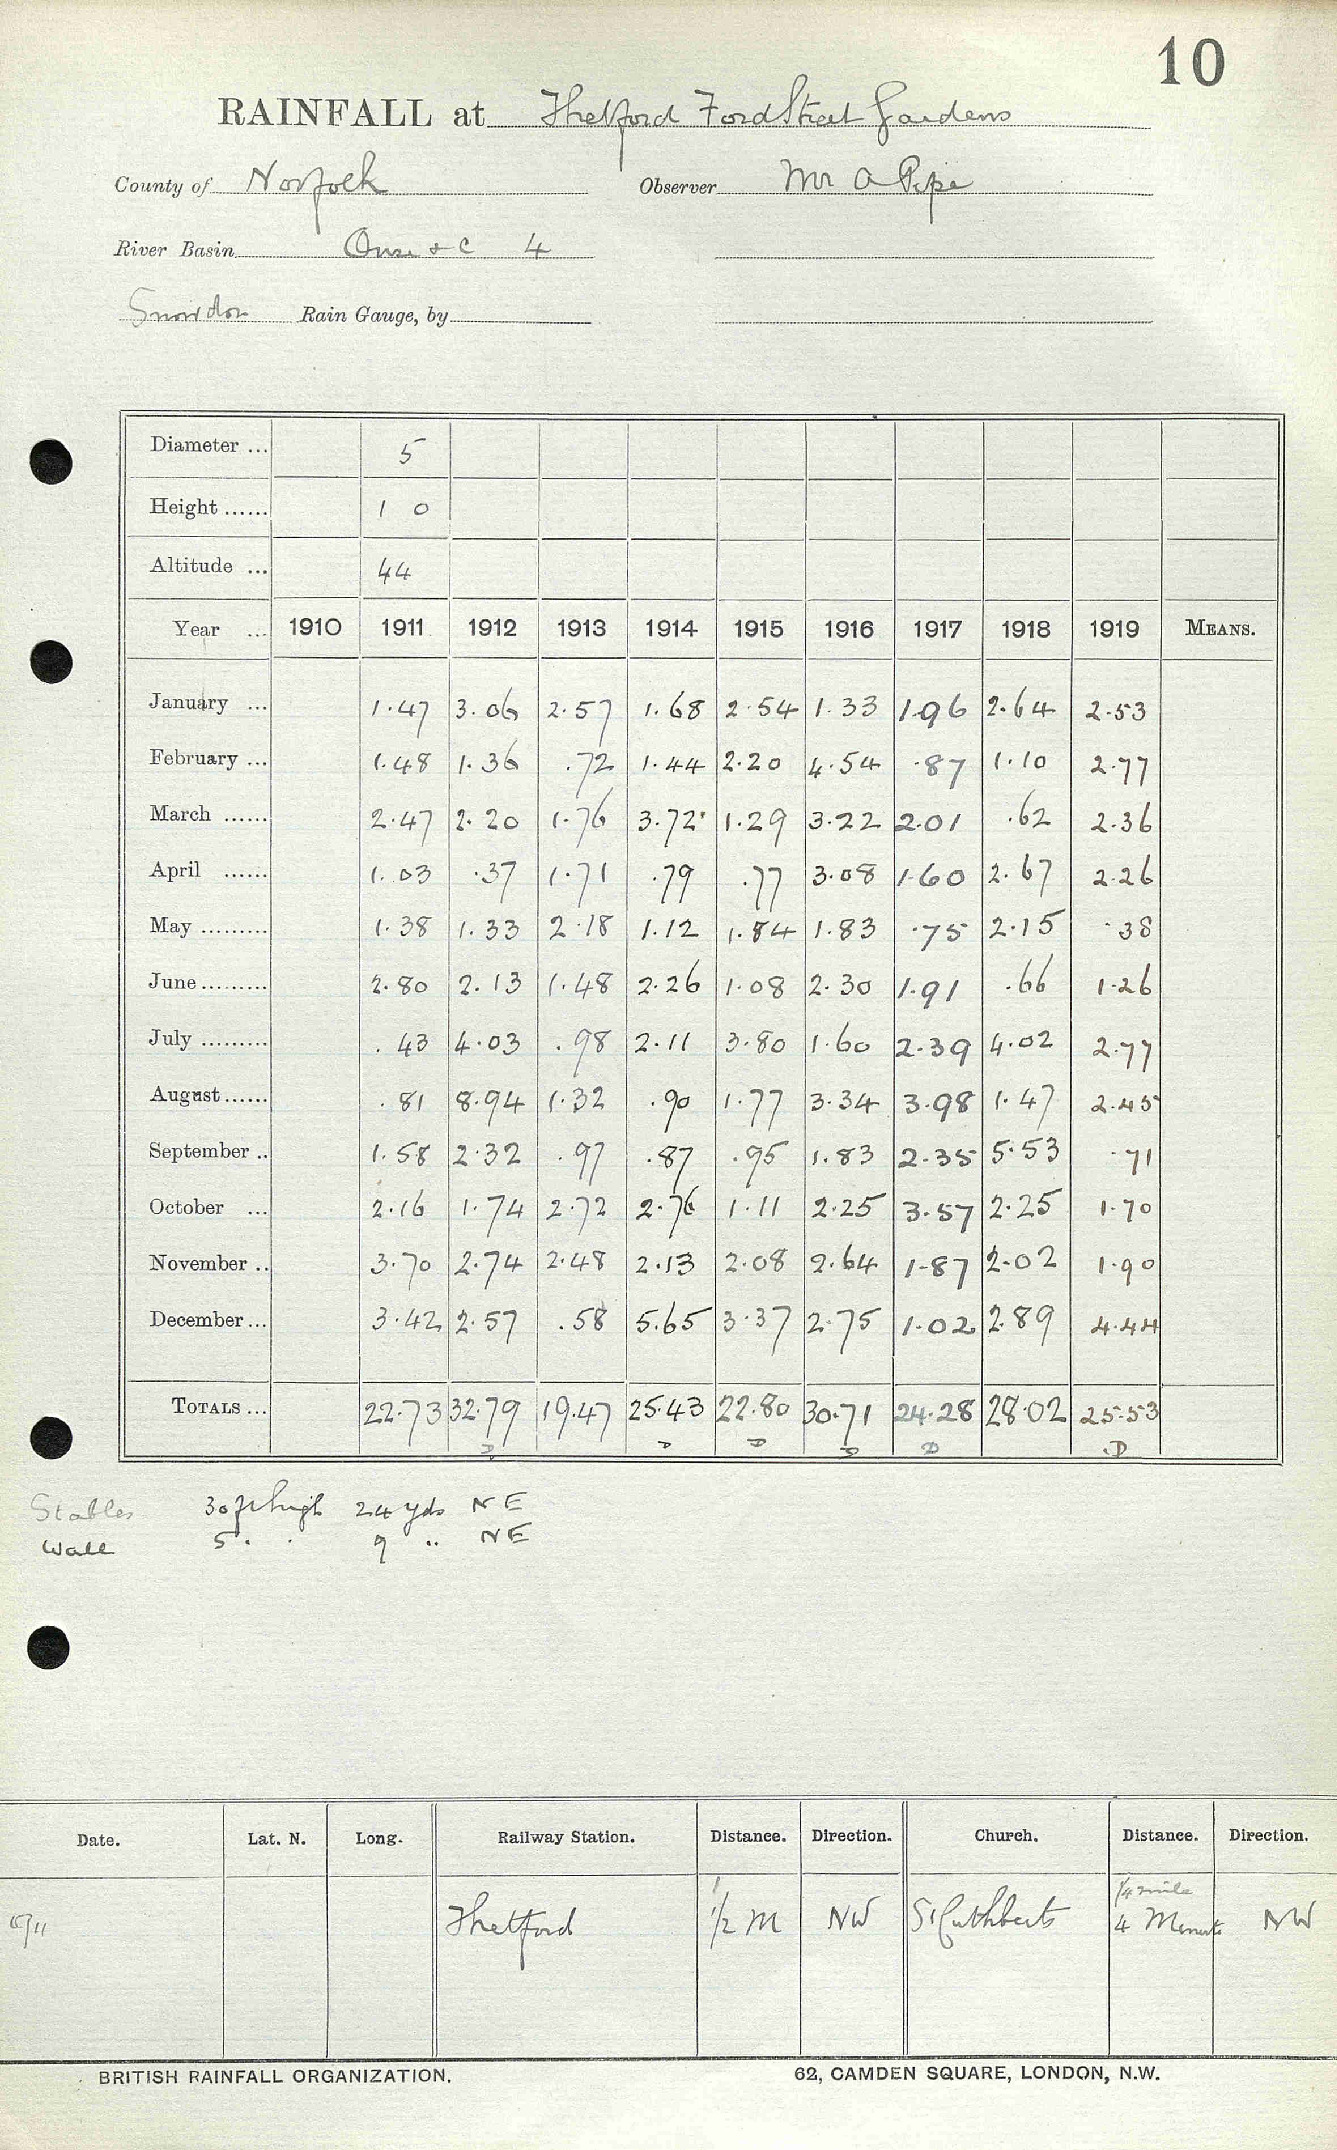 10
RAINFALL at Thetford Ford Street Gardens
County of Norfolk Observer Mr A Pipe
River Basin Ouse & C 4
Snowdon Rain Gauge, by
Diameter ... 5
Height ...... 1 0
Altitude ... 44
Year ... 1910 1911 1912 1913 1914 1915 1916 1917 1918 1919 MEANS.
January ... 1.47 3.06 2.57 1.68 2.54 1.33 1.96 2.64 2.53
February ... 1.48 1.36 .72 1.44 2.20 4.54 .87 1.10 2.77
March ...... 2.47 2.20 1.76 3.72 1.29 3.22 2.01 .62 2.36
April ...... 1.03 .37 1.71 .79 .77 3.08 1.60 2.67 2.26
May ......... 1.38 1.33 2.18 1.12 1.84 1.83 .75 2.15 .38
June ......... 2.80 2.13 1.48 2.26 1.08 2.30 1.91 .66 1.26
July ......... .43 4.03 .98 2.11 3.80 1.60 2.39 4.02 2.77
August ...... .81 8.94 1.32 .90 1.77 3.34 3.98 1.47 2.45
September .. 1.58 2.32 .97 .87 .95 1.83 2.35 5.53 .71
October ... 2.16 1.74 2.72 2.76 1.11 2.25 3.57 2.25 1.70
November .. 3.70 2.74 2.48 2.13 2.08 2.64 1.87 2.02 1.90
December ... 3.42 2.57 .58 5.65 3.37 2.75 1.02 2.89 4.44
TOTALS ... 22.73 32.79 19.47 25.43 22.80 30.71 24.28 28.02 25.53
D D D D D D
Stables 30 ft high 24 yds NE
Wall 5 . . 9 .. NE
Date. Lat. N. Long. Railway Station. Distance. Direction. Church. Distance. Direction.
1/4 mile
Thetford 1/2 M NW St Cuthberts 4 Minute NW
BRITISH RAINFALL ORGANIZATION. 62, CAMDEN SQUARE, LONDON, N.W.